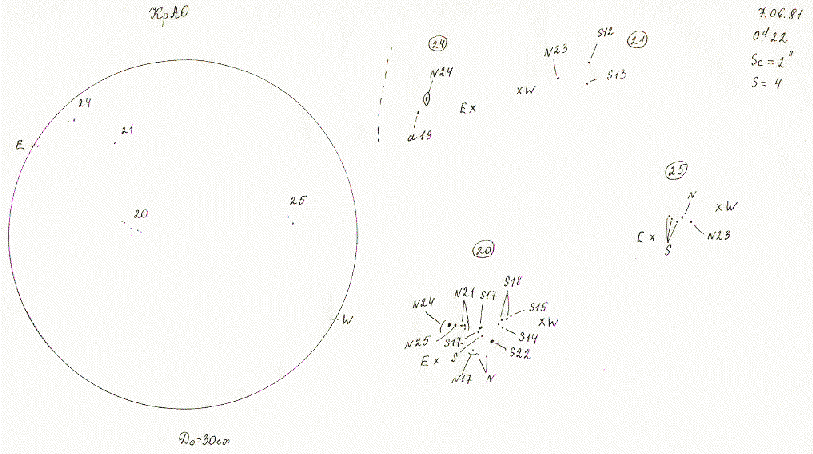 КрАО
7.06.81
Sc = 2"
S = 4
24
N24
E x
x W
21
N23
S12
S13
24
21
E
20
25
W
25
N
x W
E x
S
N23
20
N24
N21
S17
S18
S15
x W
N25
S17
S14
E x
S
S22
N17
N
D₀-30см